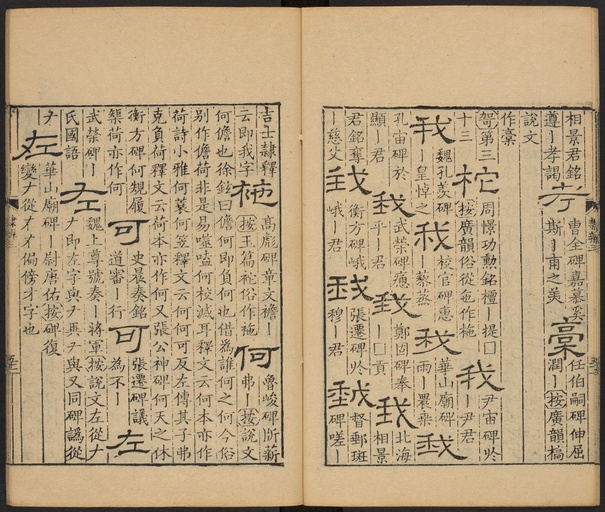 相景君銘
遵｜孝謁
考
曹全碑嘉慕奚
斯｜甫之美
槀
任伯嗣碑伸屈
潤｜按廣韻槁
說文
作槀
哿第三
十三
柁
周憬功勲銘檀｜提囗
按廣韻俗從㐌作拖
我
尹宙碑於
｜尹君
我
魏孔羨碑
｜皇悼之
我
校官碑惠
｜藜蒸
我
華山廟碑
雨｜農桒
我
孔宙碑於
顯｜君
我
武榮碑㥯
乎｜君
我
鄭固碑奉
｜囗貢
我
北海
相景
君銘奪
｜慈父
我
衡方碑峨
峨｜君
我
張遷碑於
穆｜君
我
督郵班
碑嗟｜
吉士隸釋
云即我字
袘
高彪碑章文襜｜
按玉篇袘俗作袘
何
魯峻碑斯新
弗｜按說文
何儋也徐鉉曰儋何即負何也借爲誰何之何今俗
別作儋荷非是易噬嗑何校滅耳釋文云何本亦作
荷詩小雅何蓑何笠釋文云何何可反左傳其子弗
克負荷釋文云荷本亦作何又張公神碑何天之休
衡方碑何規履
榘荷亦作何
可
史晨奏銘
道審｜行
可
張遷碑議
爲不｜
左
武榮碑｜
氏國語
左
魏上尊號奏｜將軍按說文左從𠂇
𠂇即左字與ナ異ナ與又同碑譌從
ナ
左
華山廟碑｜尉唐佑按碑復
變𠂇從才才偏傍才字也